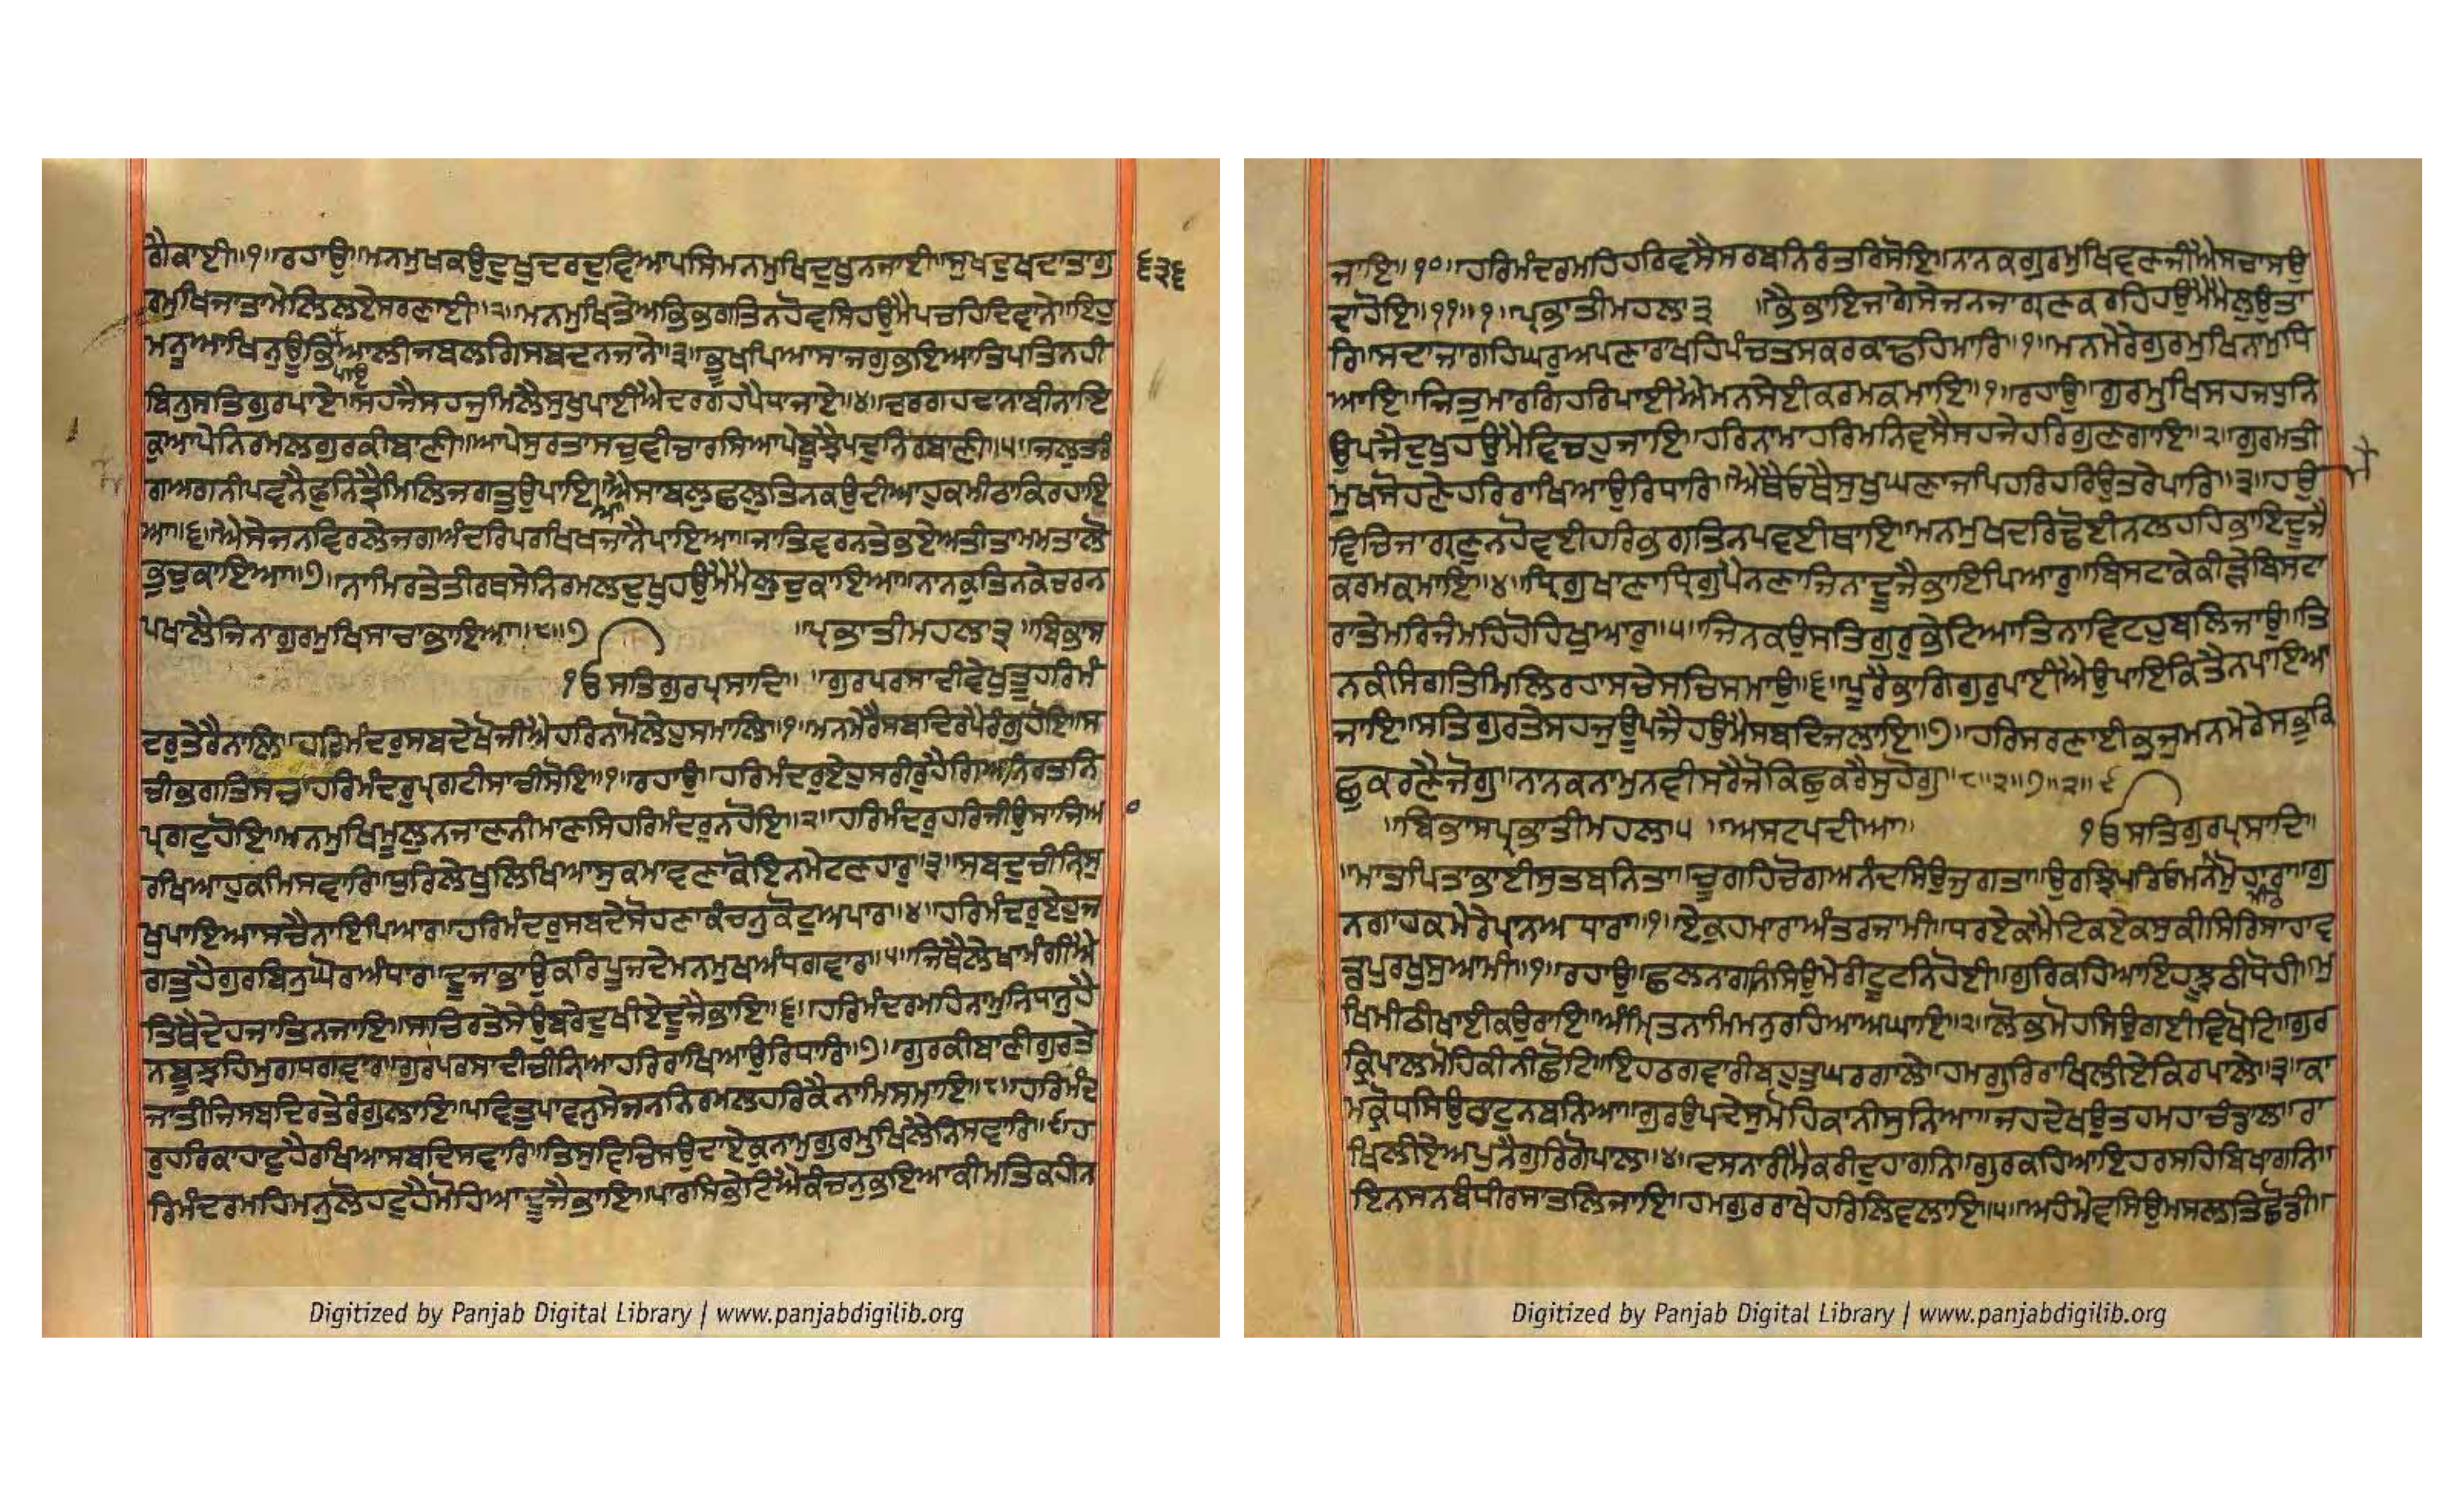 ਗੈਕਾਈ॥੧॥ਰਹਾਉ॥ਮਨਮੁਖਕਉਦੁਖੁਦਰਦੁਵਿਆਪਸਿਮਨਮੁਖਿਦੁਖੁਨਜਾਈ॥ਸੁਖਦੁਖਦਾਤਾਗੁ
੬੩੬
ਰਮੁਖਿਜਾਤਾਮੇਲਿਲਏਸਰਣਾਈ॥੨॥ਮਨਮੁਖਿਤੇਅਭਿਭਗਤਿਨਹੋਵਸਿਹਉਮੈਪਚਹਿਦਿਵਾਨੇ॥ਇਹੁ
ਮਨੂਆਖਿਨੁਊਭਿਪਇਆਲੀਜਬਲਗਿਸਬਦਨਜਾਨੇ॥੩॥ਭੂਖਪਿਆਸਾਜਗੁਭਇਆਤਿਪਤਿਨਹੀ
ਬਿਨੁਸਤਿਗੁਰਪਾਏ॥ਸਹਜੈਸਹਜੁਮਿਲੈਸੁਖੁਪਾਈਐਦਰਗਹਪੈਧਾਜਾਏ॥੪॥ਦਰਗਹਦਾਨਾਬੀਨਾਇ
ਕੁਆਪੇਨਿਰਮਲਗੁਰਕੀਬਾਣੀ॥ਆਪੇਸੁਰਤਾਸਚੁਵੀਚਾਰਸਿਆਪੇਬੂਝੈਪਦੁਨਿਰਬਾਣੀ॥੫॥ਜਲੁਤਰੰ
ਗਅਗਨੀਪਵਨੈਫੁਨਿਤ੍ਰੈਮਿਲਿਜਗਤੁਉਪਾਇਆ॥ਐਸਾਬਲੁਛਲੁਤਿਨਕਉਦੀਆਹੁਕਮੀਠਾਕਿਰਹਾਇ
ਆ॥੬॥ਐਸੇਜਨਵਿਰਲੇਜਗਅੰਦਰਿਪਰਖਿਖਜਾਨੈਪਾਇਆ॥ਜਾਤਿਵਰਨਤੇਭਏਅਤੀਤਾਮਮਤਾਲੋ
ਭੁਚੁਕਾਇਆ॥੭॥ਨਾਮਿਰਤੇਤੀਰਥਸੇਨਿਰਮਲਦੁਖੁਹਉਮੈਮੈਲੁਚੁਕਾਇਆ॥ਨਾਨਕੁਤਿਨਕੇਚਰਨ
ਪਖਾਲੈਜਿਨਾਗੁਰਮੁਖਿਸਾਚਾਭਾਇਆ॥੮॥੭ ॥ਪ੍ਰਭਾਤੀਮਹਲਾ੩॥ਬਿਭਾਸ
੧ੳਸਤਿਗੁਰਪ੍ਰਸਾਦਿ॥ ॥ਗੁਰਪਰਸਾਦੀਵੇਖੁਤੂਹਰਿਮੰ
ਦਰੁਤੇਰੈਨਾਲਿ॥ਹਰਿਮੰਦਰੁਸਬਦੇਖੋਜੀਐਹਰਿਨਾਮੋਲੇਹੁਸਮਾਲਿ॥੧॥ਮਨਮੇਰੈਸਬਦਿਰਪੈਰੰਗੁਹੋਇ॥ਸ
ਚੀਭਗਤਿਸਚਾਹਰਿਮੰਦਰੁਪ੍ਰਗਟੀਸਾਚੀਸੋਇ॥੧॥ਰਹਾਉ॥ਹਰਿਮੰਦਰੁਏਹੁਸਰੀਰੁਹੈਗਿਆਨਿਰਤਨਿ
ਪ੍ਰਗਟੁਹੋਇ॥ਮਨਮੁਖਿਮੂਲੁਨਜਾਣਨੀਮਾਣਸਿਹਰਿਮੰਦਰੁਨਹੋਇ॥੨॥ਹਰਿਮੰਦਰੁਹਰਿਜੀਉਸਾਜਿਆ
ਰਖਿਆਹੁਕਮਿਸਵਾਰਿ॥ਧੁਰਿਲੇਖੁਲਿਖਿਆਸੁਕਮਾਵਣਾਕੋਇਨਮੇਟਣਹਾਰੁ॥੩॥ਸਬਦੁਚੀਨਿਸੁ
ਖੁਪਾਇਆਸਚੈਨਾਇਪਿਆਰ॥ਹਰਿਮੰਦਰੁਸਬਦੇਸੋਹਣਾਕੰਚਨੁਕੋਟੁਅਪਾਰ॥੪॥ਹਰਿਮੰਦਰੁਏਹੁਜ
ਗਤੁਹੈਗੁਰਬਿਨੁਘੋਰਅੰਧਾਰ॥ਦੂਜਾਭਾਉਕਰਿਪੂਜਦੇਮਨਮੁਖਅੰਧਗਵਾਰ॥੫॥ਜਿਥੈਲੇਖਾਮੰਗੀਐ
ਤਿਥੈਦੇਹਜਾਤਿਨਜਾਇ॥ਸਾਚਿਰਤੇਸੇਉਬਰੇਦੁਖੀਏਦੂਜੈਭਾਇ॥੬॥ਹਰਿਮੰਦਰਮਹਿਨਾਮੁਨਿਧਾਨੁਹੈ
ਨਬੂਝਹਿਮੁਗਧਗਵਾਰ॥ਗੁਰਪਰਸਾਦੀਚੀਨਿਆਹਰਿਰਾਖਿਆਉਰਿਧਾਰਿ॥੭॥ਗੁਰਕੀਬਾਣੀਗੁਰਤੇ
ਜਾਤੀਜਿਸਬਦਿਰਤੇਰੰਗੁਲਾਇ॥ਪਵਿਤੁਪਾਵਨੁਸੇਜਨਨਿਰਮਲਹਰਿਕੈਨਾਮਿਸਮਾਇ॥੮॥ਹਰਿਮੰਦ
ਰੁਹਰਿਕਾਹਾਟੁਹੈਰਖਿਆਸਬਦਿਸਵਾਰਿ॥ਤਿਸੁਵਿਚਿਸਉਦਾਏਕੁਨਾਮੁਗੁਰਮੁਖਿਲੈਨਿਸਵਾਰਿ॥੯॥ਹ
ਰਿਮੰਦਰਮਹਿਮਨੁਲੋਹਟੁਹੈਮੋਹਿਆਦੂਜੈਭਾਇ॥ਪਾਰਸਿਭੇਟਿਐਕੰਚਨੁਭਇਆਕੀਮਤਿਕਹੀਨ
Digitized by Panjab Digital Library | www.panjabdigilib.org
ਜਾਇ॥੧੦॥ਹਰਿਮੰਦਰਮਹਿਹਰਿਵਸੈਸਰਬਨਿਰੰਤਰਿਸੋਇ॥ਨਾਨਕਗੁਰਮੁਖਿਵਣਜੀਐਸਚਾਸਉ
ਦਾਹੋਇ॥੧੧॥੧॥ਪ੍ਰਭਾਤੀਮਹਲਾ੩ ॥ਭੈਭਾਇਜਾਗੇਸੇਜਨਜਾਗ੍ਰਣਕਰਹਿਹਉਮੈਮੈਲੁਉਤਾ
ਰਿ॥ਸਦਾਜਾਗਹਿਘਰੁਅਪਣਾਰਾਖਹਿਪੰਚਤਸਕਰਕਾਢਹਿਮਾਰਿ॥੧॥ਮਨਮੇਰੇਗੁਰਮੁਖਿਨਾਮੁਧਿ
ਆਇ॥ਜਿਤੁਮਾਰਗਿਹਰਿਪਾਈਐਮਨਸੇਈਕਰਮਕਮਾਇ॥੧॥ਰਹਾਉ॥ਗੁਰਮੁਖਿਸਹਜਧੁਨਿ
ਉਪਜੈਦੁਖੁਹਉਮੈਵਿਚਹੁਜਾਇ॥ਹਰਿਨਾਮਾਹਰਿਮਨਿਵਸੈਸਹਜੇਹਰਿਗੁਣਗਾਇ॥੨॥ਗੁਰਮਤੀ
ਮੁਖਸੋਹਣੇਹਰਿਰਾਖਿਆਉਰਿਧਾਰਿ॥ਐਥੈਓਥੈਸੁਖੁਘਣਾਜਪਿਹਰਿਹਰਿਉਤਰੇਪਾਰਿ॥੩॥ਹਉ
ਵਿਚਿਜਾਗ੍ਰਣੁਨਹੋਵਈਹਰਿਭਗਤਿਨਪਵਈਥਾਇ॥ਮਨਮੁਖਦਰਿਢੋਈਨਲਹਹਿਭਾਇਦੂਜੈ
ਕਰਮਕਮਾਇ॥੪॥ਧ੍ਰਿਗੁਖਾਣਾਧ੍ਰਿਗੁਪੈਨਣਾਜਿਨਾਦੂਜੈਭਾਇਪਿਆਰੁ॥ਬਿਸਟਾਕੇਕੀੜੇਬਿਸਟਾ
ਰਾਤੇਮਰਿਜੰਮਹਿਹੋਹਿਖੁਆਰੁ॥੫॥ਜਿਨਕਉਸਤਿਗੁਰੁਭੇਟਿਆਤਿਨਾਵਿਟਹੁਬਲਿਜਾਉ॥ਤਿ
ਨਕੀਸੰਗਤਿਮਿਲਿਰਹਾਸਚੇਸਚਿਸਮਾਉ॥੬॥ਪੂਰੈਭਾਗਿਗੁਰੁਪਾਈਐਉਪਾਇਕਿਤੈਨਪਾਇਆ
ਜਾਇ॥ਸਤਿਗੁਰਤੇਸਹਜੁਊਪਜੈਹਉਮੈਸਬਦਿਜਲਾਇ॥੭॥ਹਰਿਸਰਣਾਈਭਜੁਮਨਮੇਰੇਸਭਕਿ
ਛੁਕਰਣੈਜੋਗੁ॥ਨਾਨਕਨਾਮੁਨਵੀਸਰੈਜੋਕਿਛੁਕਰੈਸੁਹੋਗੁ॥੮॥੨॥੭॥੨॥੯
॥ਬਿਭਾਸਪ੍ਰਭਾਤੀਮਹਲਾ੫ ॥ਅਸਟਪਦੀਆ॥ ੧ੳਸਤਿਗੁਰਪ੍ਰਸਾਦਿ॥
॥ਮਾਤਪਿਤਾਭਾਈਸੁਤਬਨਿਤਾ॥ਚੂਗਹਿਚੋਗਅਨੰਦਸਿਉਜੁਗਤਾ॥ਉਰਝਿਪਰਿਓਮਨਮੀਠਮੋਹਾਰਾ॥ਗੁ
ਨਗਾਹਕਮੇਰੇਪ੍ਰਾਨਅਧਾਰਾ॥੧॥ਏਕੁਹਮਾਰਾਅੰਤਰਜਾਮੀ॥ਧਰਏਕਾਮੈਟਿਕਏਕਸੁਕੀਸਿਰਿਸਾਹਾਵ
ਡਪੁਰਖੁਸੁਆਮੀ॥੧॥ਰਹਾਉ॥ਛਲਨਾਗਨਿਸਿਉਮੇਰੀਟੂਟਨਿਹੋਈ॥ਗੁਰਿਕਹਿਆਇਹਝੂਠੀਧੋਹੀ॥ਮੁ
ਖਿਮੀਠੀਖਾਈਕਉਰਾਇ॥ਅੰਮ੍ਰਿਤਨਾਮਿਮਨੁਰਹਿਆਅਘਾਇ॥੨॥ਲੋਭਮੋਹਸਿਉਗਈਵਿਖੋਟਿ॥ਗੁਰ
ਕ੍ਰਿਪਾਲਮੋਹਿਕੀਨੀਛੋਟਿ॥ਇਹਠਗਵਾਰੀਬਹੁਤੁਘਰਗਾਲੇ॥ਹਮਗੁਰਿਰਾਖਿਲੀਏਕਿਰਪਾਲੇ॥੩॥ਕਾ
ਮਕ੍ਰੋਧਸਿਉਠਾਟੁਨਬਨਿਆ॥ਗੁਰਉਪਦੇਸੁਮੋਹਿਕਾਨੀਸੁਨਿਆ॥ਜਹਦੇਖਉਤਹਮਹਾਚੰਡਾਲ॥ਰਾ
ਖਿਲੀਏਅਪੁਨੈਗੁਰਿਗੋਪਾਲ॥੪॥ਦਸਨਾਰੀਮੈਕਰੀਦੁਹਾਗਨਿ॥ਗੁਰਕਹਿਆਇਹਰਸਹਿਬਿਖਾਗਨਿ॥
ਇਨਸਨਬੰਧੀਰਸਾਤਲਿਜਾਇ॥ਹਮਗੁਰਰਾਖੇਹਰਿਲਿਵਲਾਇ॥੫॥ਅਹੰਮੇਵਸਿਉਮਸਲਤਿਛੋਡੀ॥
Digitized by Panjab Digital Library | www.panjabdigilib.org